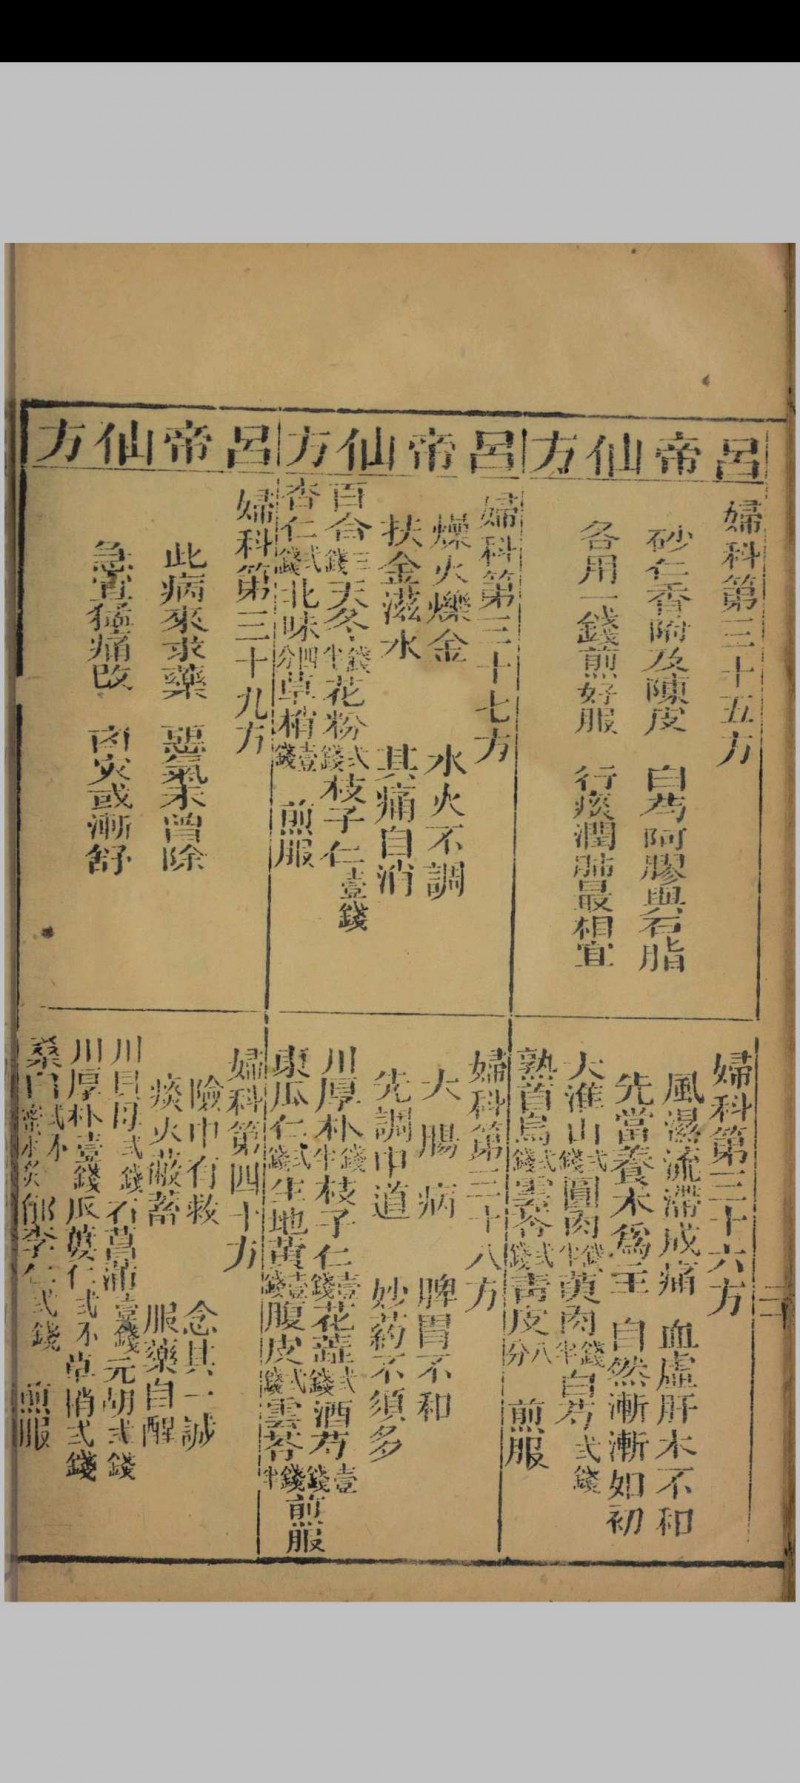 呂帝仙方
婦科第三十五方
砂仁香附及陳皮　白芍阿膠與石脂
各用一錢煎好服　行痰潤肺最相宜
婦科第三十六方
風濕流滯成痛　血虛肝木不和
先當養木爲主　自然漸漸如初
大淮山弍錢圓肉錢半萸肉錢半白芍弍錢
熟首烏弍錢雲苓弍錢靑皮八分　煎服
呂帝仙方
婦科第三十七方
燥火爍金　水火不調
扶金滋水　其痛自消
百合三錢天冬錢半花粉弍錢枝子仁壹錢
杏仁弍錢北味四分草梢壹錢　煎服
婦科第三十八方
大腸病　脾胃不和
先調中道　妙药不須多
川厚朴錢半枝子仁壹錢花蕋弍錢酒芍壹錢
東瓜仁弍錢生地黃壹錢腹皮弍錢雲苓錢半煎服
呂帝仙方
婦科第三十九方
此病來求藥　惡氣未曾除
急宜猛痛改　凶灾或漸舒
婦科第四十方
險中有救　念其一誠
痰火蔽蓄　服藥自醒
川貝母弍錢石菖蒲壹錢元胡弍錢
川厚朴壹錢瓜蔞仁弍不草梢弍錢
桑白弍不蜜水炙郁李仁弍錢　煎服
二十